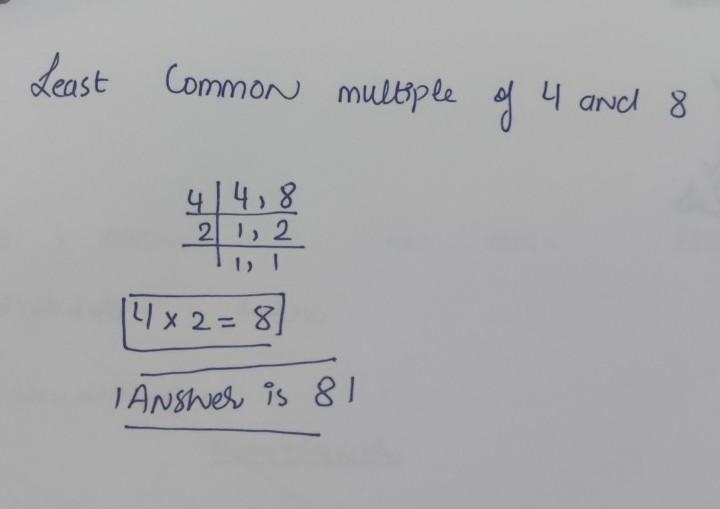 Least Common multiple of 4 and 8
4 | 4, 8
2 | 1, 2
| 1, 1
4 x 2 = 8
Answer is 8